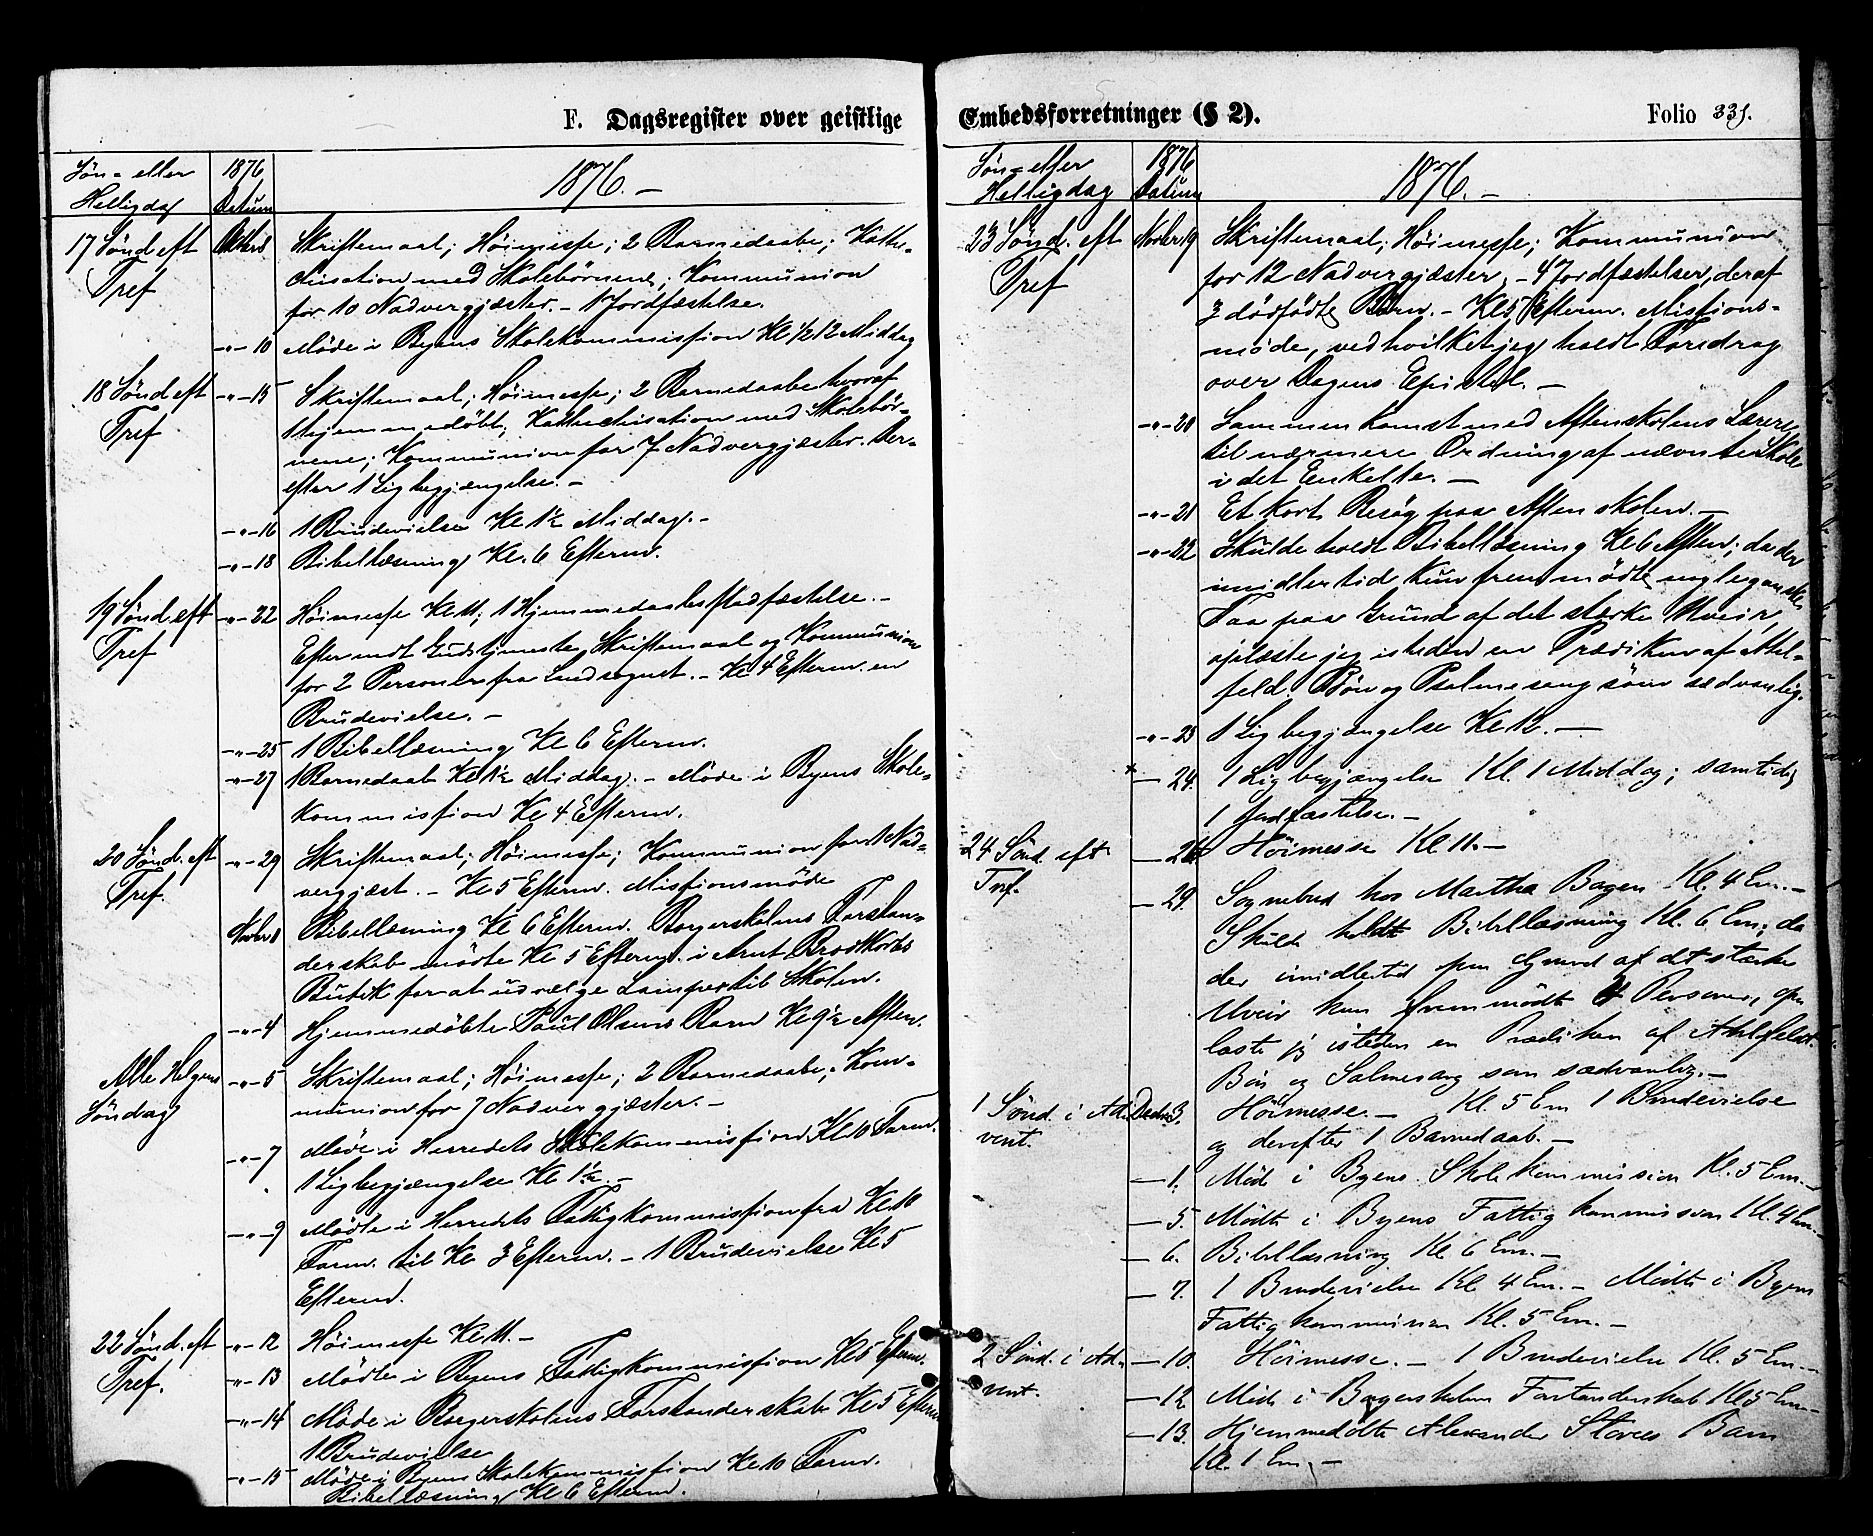 F. Dagsregister over geistlige
Søn- eller Helligdag
1876 Datum
1876. -
17 Sønd eft Tref
Octbr 8
Skriftemaal; Høimesse; 2 Barnedaabe; Kathe-
chisation med Skolebørnene; Kommunion
for 10 Nadvergjæster. - 1 Jordfæstelse.
-"- 10 Møde i Byens Skolekommission Kl ½12 Middag
18 Sønd eft Tref
-"- 15 Skriftemaal; Høimesse; 2 Barnedaabe hvoraf
1 hjemmedøbt; Kathechisation med Skolebør-
nene; Kommunion for 7 Nadvergjæster. Der-
efter 1 Ligbegjængelse. -
-"- 16 1 Brudevielse Kl 1½ Middag. -
-"- 18 Bibellæsning Kl. 6 Efterm.
19 Sønd eft Tref
-"- 22 Høimesse Kl 11; 1 Hjemmedaabs stadfæstelse. -
Efter endt Gudstjeneste Skriftemaal og Kommunion
for 2 Personer fra Landsognet. - Kl 4 Efterm. en
Brudevielse. -
-"- 25 1 Bibellæsning Kl 6 Efterm.
-"- 27 1 Barnedaab Kl 1½ Middag. - Møde i Byens Skole-
kommission Kl 4 Efterm.
20 Sønd. eft Tref.
-"- 29 Skriftemaal; Høimesse; Kommunion for 1 Nad-
vergjæst. - Kl 5 Efterm. Missionsmøde
Novbr 1 Bibellæsning Kl 6 Efterm. Borgerskolens Forstan-
derskab mødte Kl 5 Efterm. i Arnt Brodtkorbs
Butik for at udvælge Lamper til Skolen.
-"- 4 Hjemmedøbte Paul Olsens Barn Kl 9½ Aften.
Alle Helgens Søndag
-"- 5 Skriftemaal; Høimesse; 2 Barnedaabe; Kom-
munion for 7 Nadvergjæster. -
-"- 7 Møde i Herredets Skolekommission Kl 10 Form.
1 Ligbegjængelse Kl 1½. -
-"- 9 Mødte i Herredets Fattigkommission fra Kl 10
Form. til Kl 3 Efterm. - 1 Brudevielse Kl 5
Efterm.
22 Sønd. eft Tref.
-"- 12 Høimesse Kl 11. -
-"- 13 Mødte i Byens Fattigkommission Kl 5 Efterm.
-"- 14 Møde i Borgerskolens Forstanderskab Kl 5 Efterm
1 Brudevielse
-"- 15 Møde i Byens Skolekommission Kl 10 Form.
Bibellæsning Kl 6 Efterm.
Embedsforretninger (§ 2).
Folio 331.
Søn- eller Helligdag
1876 Datum
1876. -
23 Sønd. eft Tref
Novbr 19 Skriftemaal; Høimesse; Kommunion
for 12 Nadvergjæster, - 4 Jordfæstelser, deraf
3 dødfødte Børn. - Kl 5 Efterm. Missions-
møde, ved hvilket jeg holdt Foredrag
over Dagens Epistel. -
-"- 20 Sammenkomst med Aftenskolens Lærere
til nærmere Ordning af nævnte Skole
i det Enkelte. -
-"- 21 Et kort Besøg paa Aftenskolen. -
-"- 22 Skulde holdt Bibellæsning Kl 6 Aften; da der
imidlertid kun fremmødte nogle ganske
Faa paa Grund af det stærke Uveir,
oplæste jeg isteden en Prædiken af Ahl-
feld. Bøn og Psalmesang som sædvanlig.
-"- 23 1 Ligbegjængelse Kl 12. -
— 24. 1 Ligbegjængelse Kl. 1 Middag; samtidig
1 Jordfæstelse. -
24 Sønd. eft Tref.
— 26 Høimesse Kl 11. -
— 29. Sognebud hos Martha Bagen Kl. 4 Em. -
Skulde holdt Bibellæsning Kl. 6 Em; da
der imidlertid paa Grund af det stærke
Uveir kun fremmødte 4 Personer, op-
læste jeg isteden en Prædiken af Ahlfeldt.
Bøn og Salmesang som sædvanlig. -
1 Sønd. i Advent.
Decbr 3. Høimesse. - Kl. 5 Em 1 Brudevielse
og derefter 1 Barnedaab. -
— 1. Møde i Byens Skolekommission Kl. 5 Em. -
— 5. Mødte i Byens Fattigkommission Kl. 4 Em. -
— 6. Bibellæsning Kl. 6 Em. -
— 7. 1 Brudevielse Kl 4 Em. - Mødte i Byens
Fattigkommission Kl. 5 Em. -
2 Sønd. i Advent.
— 10. Høimesse. - 1 Brudevielse Kl. 5 Em. -
— 12 Møde i Borgerskolens Forstanderskab Kl 5 Em. -
— 13. Hjemmedøbte Alexander Barn
Kl. 1 Em. -